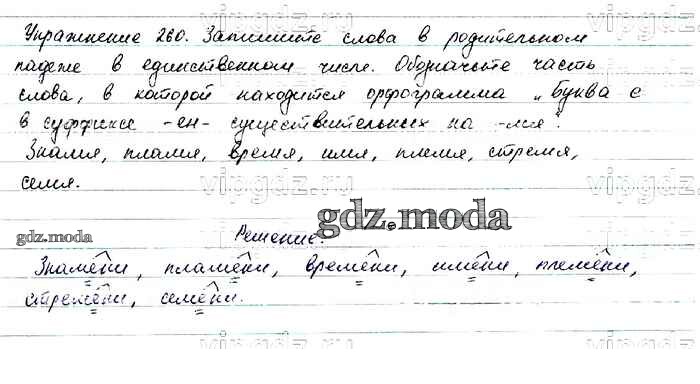 vipgdz.ru vipgdz.ru
Упражнение 260. Запишите слова в родительном
падеже в единственном числе. Обозначьте часть
слова, в которой находится орфограмма „Буква е
в суффиксе -ен- существительных на -мя".
Знамя, пламя, время, имя, племя, стремя,
семя.
vipgdz.ru vipgdz.ru
gdz.moda
gdz.moda Решение.
Знамени, пламени, времени, имени, племени,
стремени, семени.
vipgdz.ru vipgdz.ru